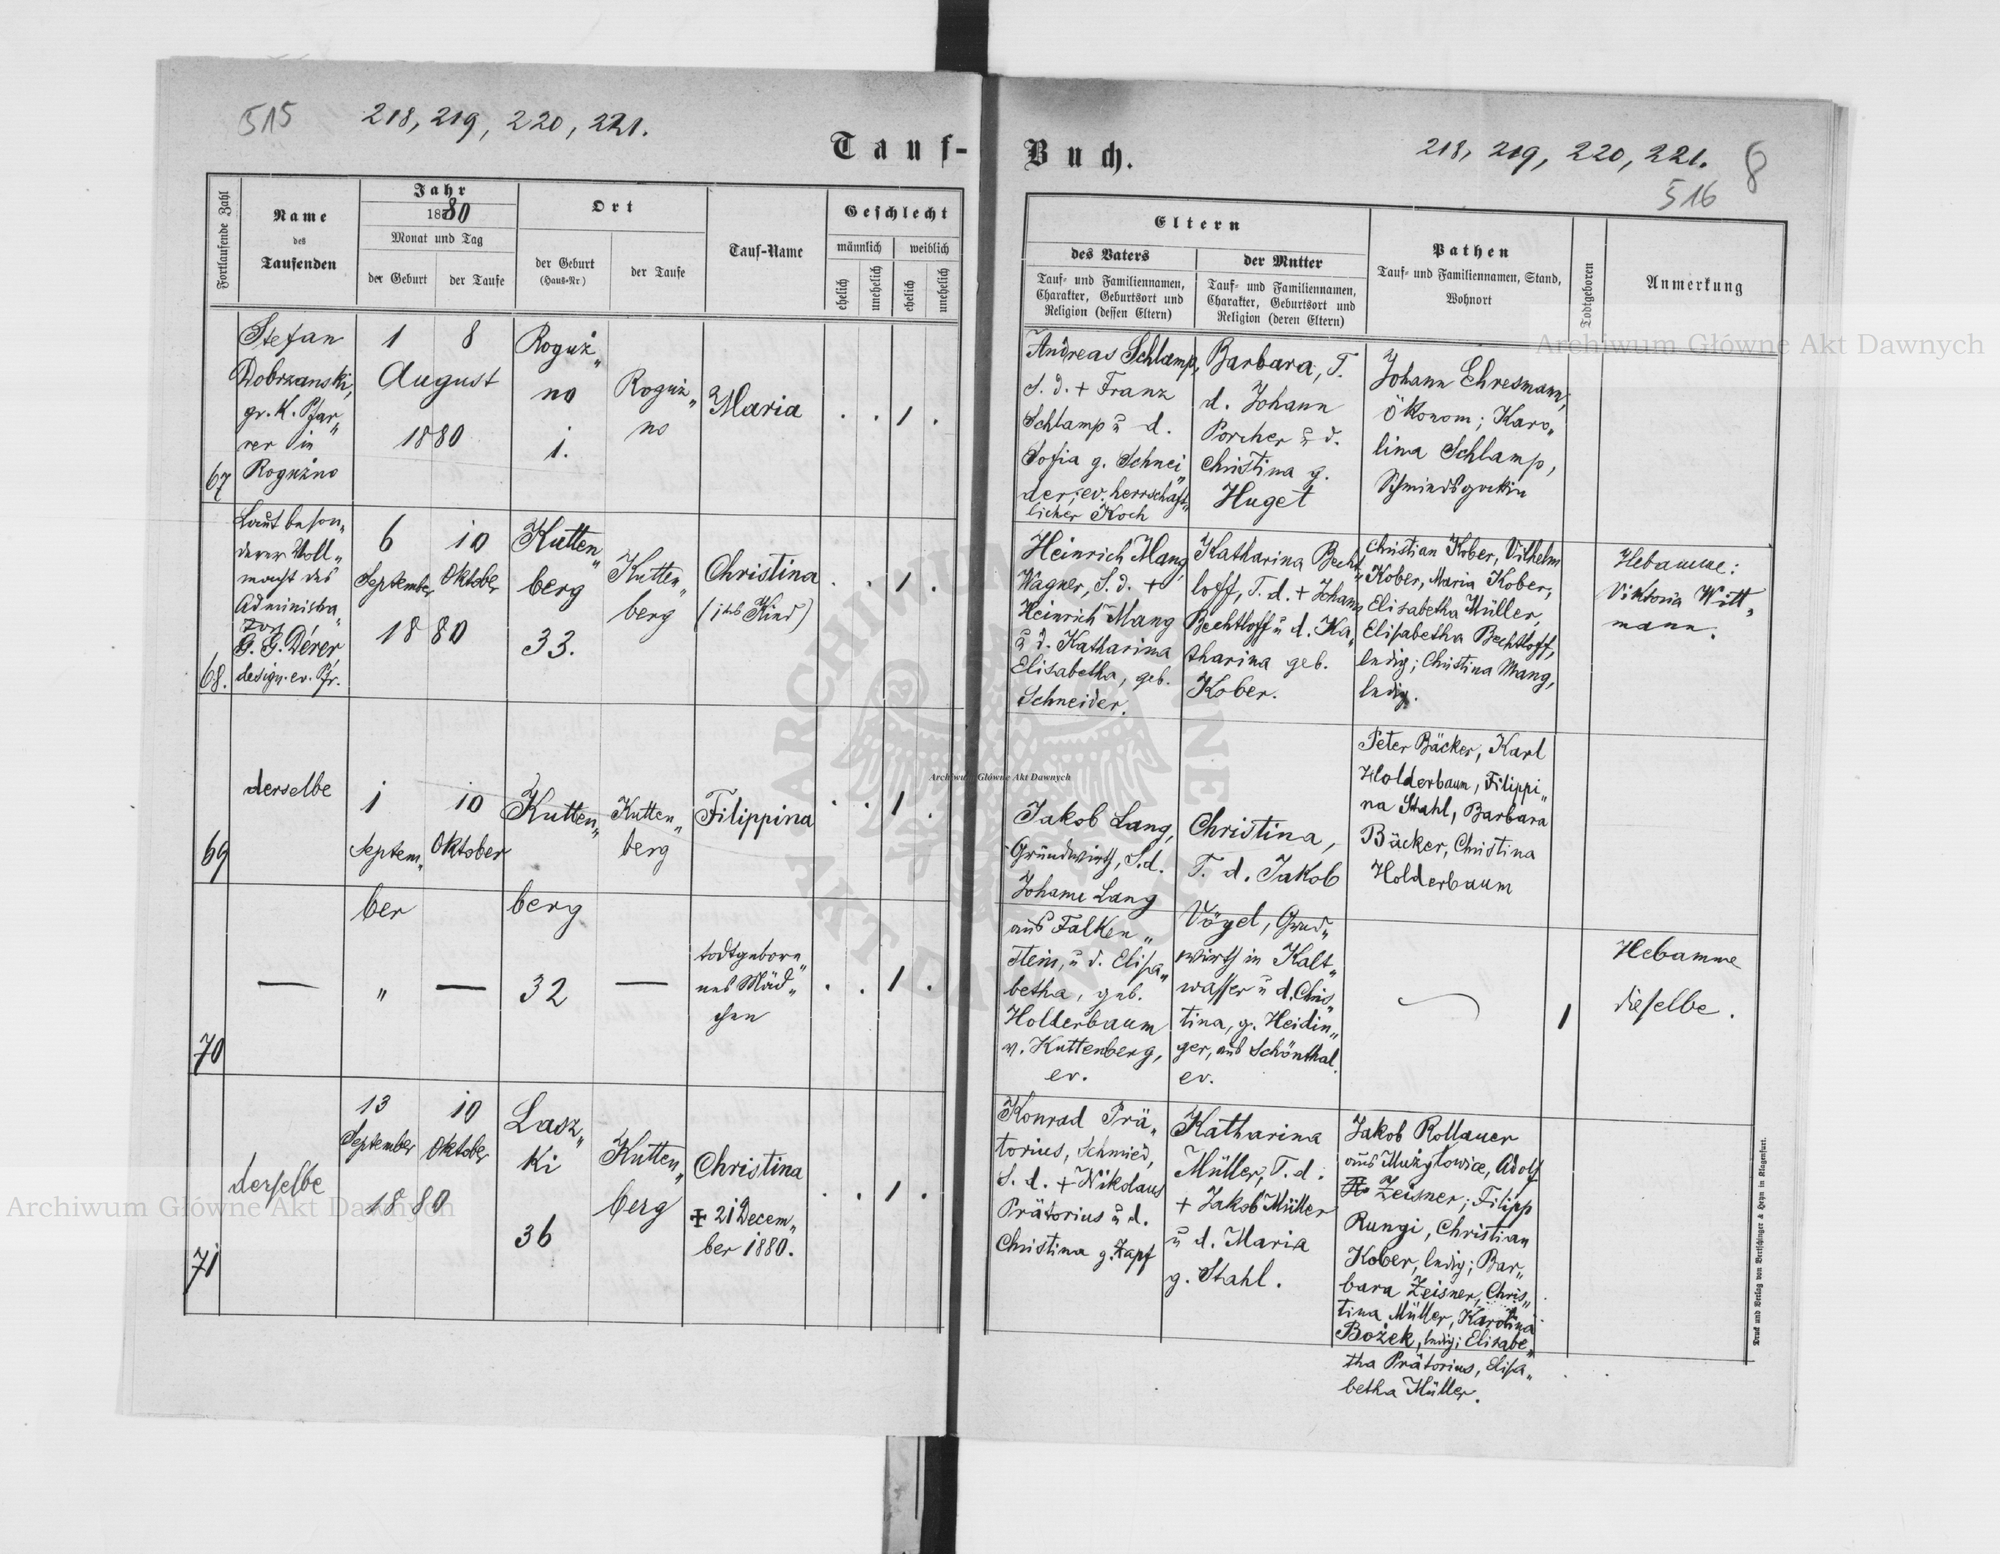 515
218, 219, 220, 221.
Tauf-
Buch.
218, 219, 220, 221.
516
8
Fortlaufende Zahl
Name
des
Taufenden
Jahr
1880
Monat und Tag
der Geburt
der Taufe
Ort
der Geburt
(Haus-Nr)
der Taufe
Tauf-Name
Geschlecht
männlich
weiblich
ehelich
unehelich
ehelich
unehelich
Eltern
des Vaters
Tauf- und Familiennamen,
Charakter, Geburtsort und
Religion (dessen Eltern)
der Mutter
Tauf- und Familiennamen,
Charakter, Geburtsort und
Religion (deren Eltern)
Pathen
Tauf- und Familiennamen, Stand,
Wohnort
Todtgeboren
Anmerkung
67
Stefan
Dobrzanski,
gr. K. Pfar„
rer in
Roguźno
1
8
August
1880
Roguż„
no
1.
Roguż„
no
Maria
. . 1 .
Andreas Schlamp,
S. d. + Franz
Schlamp u d.
Sofia g. Schnei„
der; ev. herrschaft„
licher Koch
Barbara, T.
d. Johann
Porcher u d.
Christina g.
Huget
Johann Ehresmann,
Ökonom; Karo„
lina Schlamp,
68.
Laut beson„
derer Voll„
macht des
Administra„
tors
G. G. Dérer
design. ev. Pfr.
6
10
September
Oktober
1880
Kutten„
berg
33.
Kutten„
berg
Christina
(1tes Kind)
. . 1 .
Heinrich Mang,
Wagner, S. d. +
Heinrich Mang
u d. Katharina
Elisabetha, geb.
Schneider.
Katharina Becht„
loff, T. d. + Johann
Bechtloff u d. Ka„
tharina geb.
Kober.
Christian Kober, Vilhelm
Kober, Maria Kober,
Elisabetha Müller,
Elisabetha Bechtloff,
ledig; Christina Mang,
ledig.
Hebamme:
Viktoria Witt„
mann.
69
derselbe
1
10
Septem„
Oktober
ber
Kutten„
berg
Kutten„
berg
Filippina
. . 1 .
Jakob Lang,
Grundwirth, S. d.
Johann Lang
aus Falken„
stein, u d. Elisa„
betha, geb.
Holderbaum
v. Kuttenberg,
ev.
Christina,
T. d. Jakob
Vögel, Grund„
wirth in Kalt„
wasser u d. Chris„
tina, g. Heidin„
ger, aus Schönthal.
ev.
Peter Bäcker, Karl
Holderbaum, Filippi„
na Stahl, Barbara
Bäcker, Christina
Holderbaum
70
—
„
—
32
—
todtgebore„
nes Mäd„
chen
. . 1 .
1
Hebamme
dieselbe.
71
derselbe
13
10
September
Oktober
1880
Lasz„
ki
36
Kutten„
berg
Christina
✠ 21 Decem„
ber 1880.
. . 1 .
Konrad Prä„
torius, Schmied,
S. d. + Nikolaus
Prätorius u d.
Christina g. Zapf
Katharina
Müller, T. d.
+ Jakob Müller
u d. Maria
g. Stahl.
Jakob Rollauer
aus Mużyłowice, Adolf
Zeisner; Filipp
Rungi, Christian
Kober, ledig; Bar„
bara Zeisner, Chris„
tina Müller, Karolina
Bożek, ledig; Elisabe„
tha Prätorius, Elisa„
betha Müller.
Druck und Verlag von Bertschinger & Heyn in Klagenfurt.
Archiwum Główne Akt Dawnych
Archiwum Główne Akt Dawnych
Archiwum Główne Akt Dawnych
ARCHIWUM GŁÓWNE AKT DAWNYCH